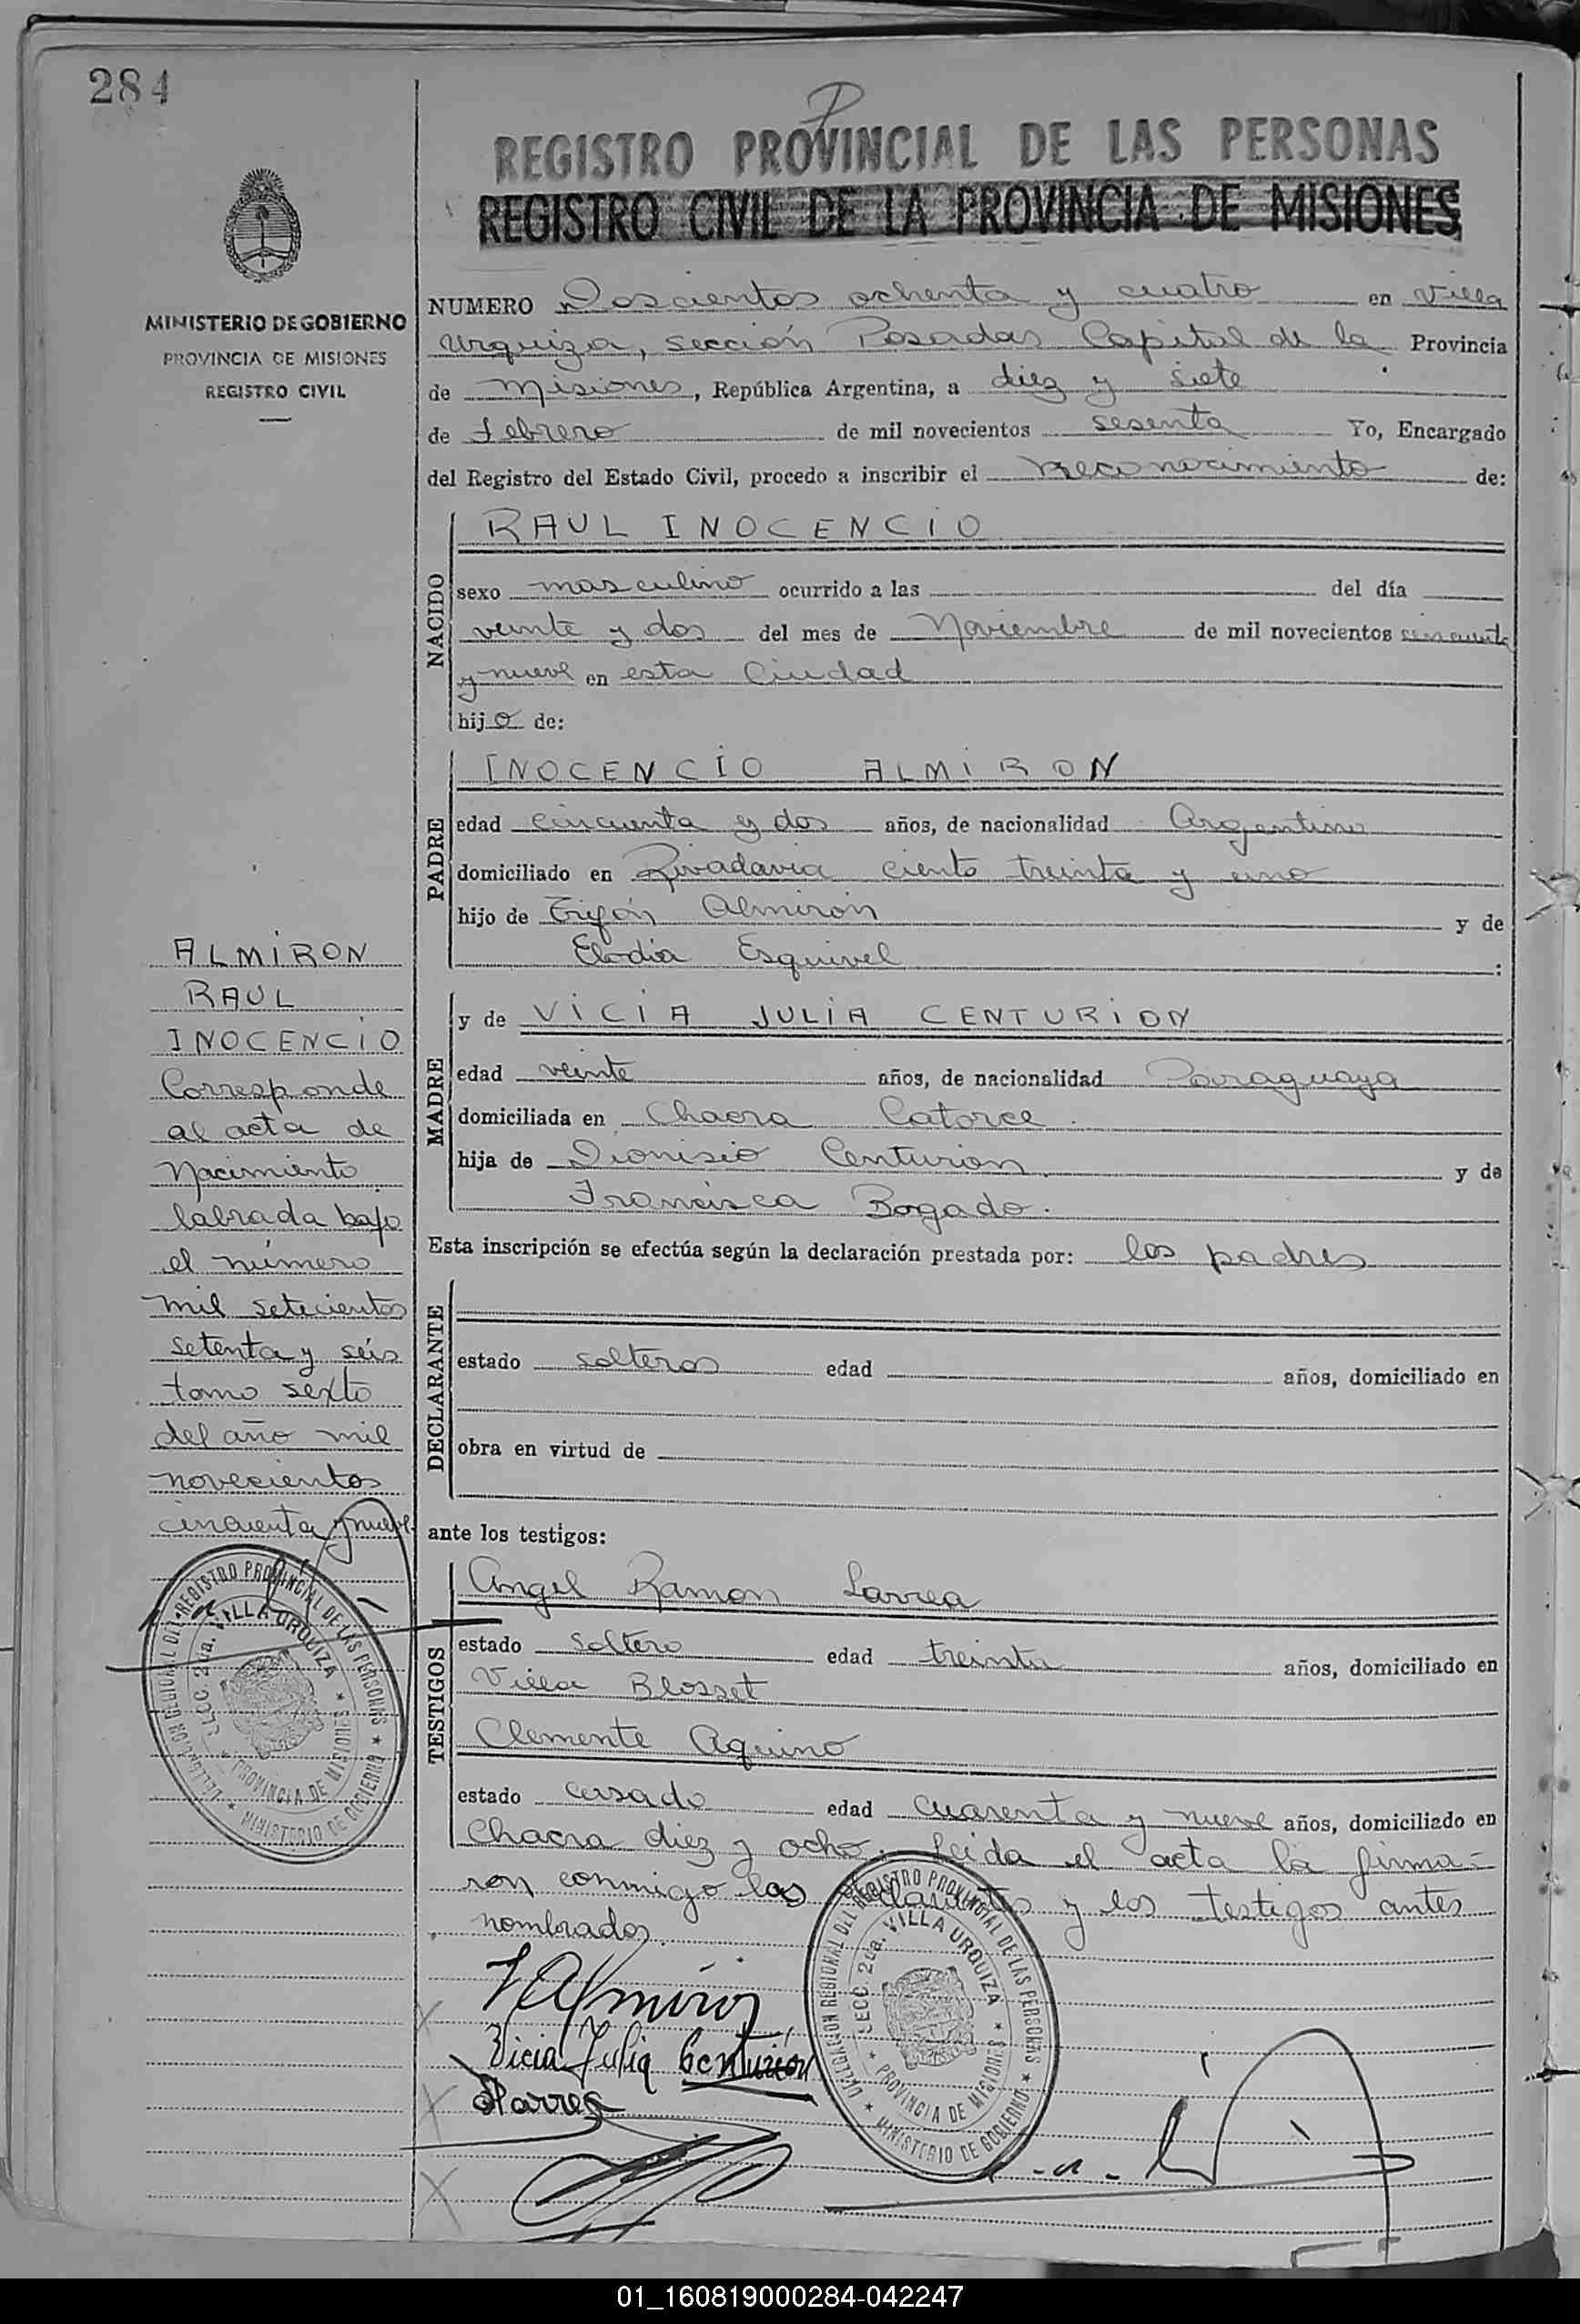 284
REGISTRO PROVINCIAL DE LAS PERSONAS
REGISTRO CIVIL DE LA PROVINCIA DE MISIONES
MINISTERIO DE GOBIERNO
PROVINCIA DE MISIONES
REGISTRO CIVIL
NUMERO Doscientos ochenta y cuatro en Villa
Urquiza, sección Posadas Capital de la Provincia
de Misiones, República Argentina, a diez y siete
de Febrero de mil novecientos sesenta Yo, Encargado
del Registro del Estado Civil, procedo a inscribir el reconocimiento de:
NACIDO
RAUL INOCENCIO
sexo masculino ocurrido a las del día
veinte y dos del mes de Noviembre de mil novecientos cincuenta
y nueve en esta Ciudad
hijo de:
PADRE
INOCENCIO ALMIRON
edad cincuenta y dos años, de nacionalidad Argentino
domiciliado en Rivadavia ciento treinta y uno
hijo de Trifón Almirón y de
Elodia Esquivel :
MADRE
y de VICIA JULIA CENTURION
edad veinte años, de nacionalidad Paraguaya
domiciliada en Chacra Catorce.
hija de Dionisio Centurion y de
Francisca Bogado.
Esta inscripción se efectúa según la declaración prestada por: los padres
DECLARANTE
estado solteros edad años, domiciliado en
obra en virtud de
ante los testigos:
TESTIGOS
Angel Ramon Larrea
estado soltero edad treinta años, domiciliado en
Villa Blosset
Clemente Aquino
estado casado edad cuarenta y nueve años, domiciliado en
Chacra diez y ocho. Leida el acta la firma-
ron conmigo los y los testigos antes
nombrados.
ALMIRON
RAUL
INOCENCIO
Corresponde
al acta de
Nacimiento
labrada bajo
el número
mil setecientos
setenta y séis
tomo sexto
del año mil
novecientos
cincuenta y nueve
DELEGACION REGIONAL DEL REGISTRO PROVINCIAL DE LAS PERSONAS
SECC. 2da. VILLA URQUIZA
PROVINCIA DE MISIONES
MINISTERIO DE GOBIERNO
Almiron
Vicia Julia Centurión
Larrea
DELEGACION REGIONAL DEL REGISTRO PROVINCIAL DE LAS PERSONAS
SECC. 2da. VILLA URQUIZA
PROVINCIA DE MISIONES
MINISTERIO DE GOBIERNO
01_160819000284-042247